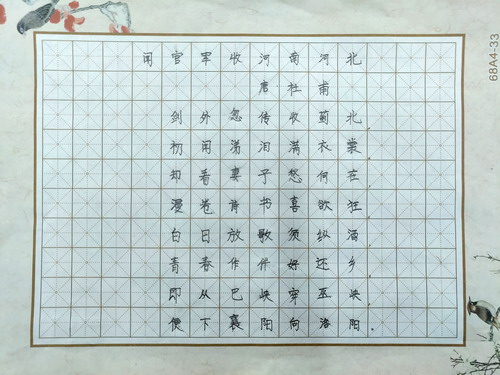 闻官军收河南河北
唐杜甫
剑外忽传收蓟北，
初闻涕泪满衣裳。
却看妻子愁何在，
漫卷诗书喜欲狂。
白日放歌须纵酒，
青春作伴好还乡。
即从巴峡穿巫峡，
便下襄阳向洛阳。
68A4-33